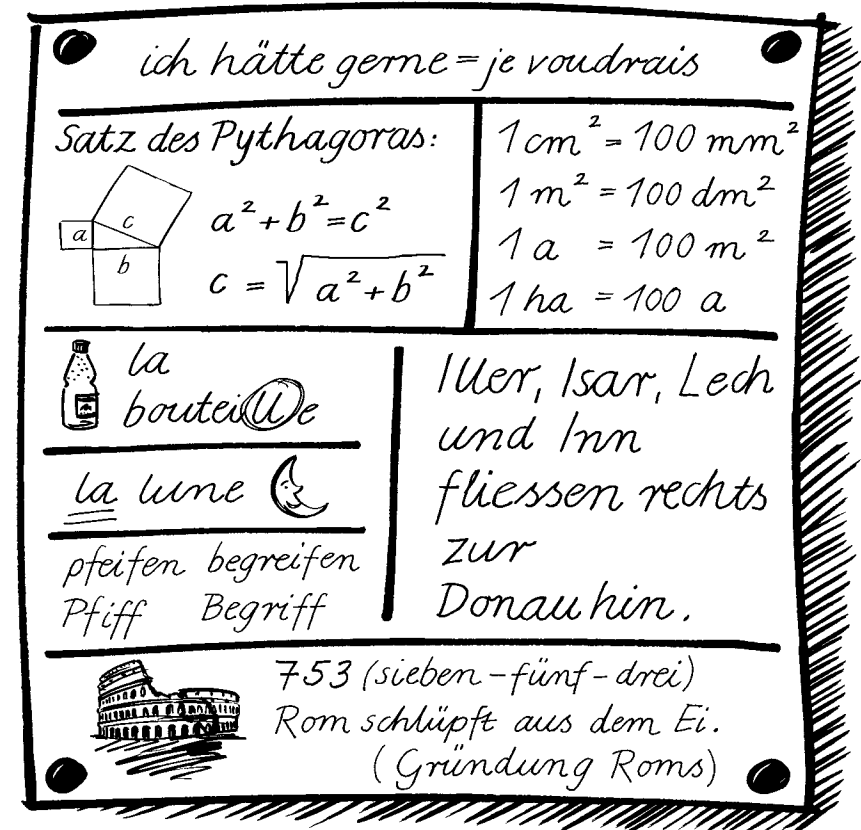 ich hätte gerne = je voudrais
Satz des Pythagoras:
a
c
b
a² + b² = c²
c = √a² + b²
1 cm² = 100 mm²
1 m² = 100 dm²
1 a = 100 m²
1 ha = 100 a
la
bouteille
la lune
pfeifen begreifen
Pfiff Begriff
Iller, Isar, Lech
und Inn
fliessen rechts
zur
Donau hin.
753 (sieben-fünf-drei)
Rom schlüpft aus dem Ei.
(Gründung Roms)